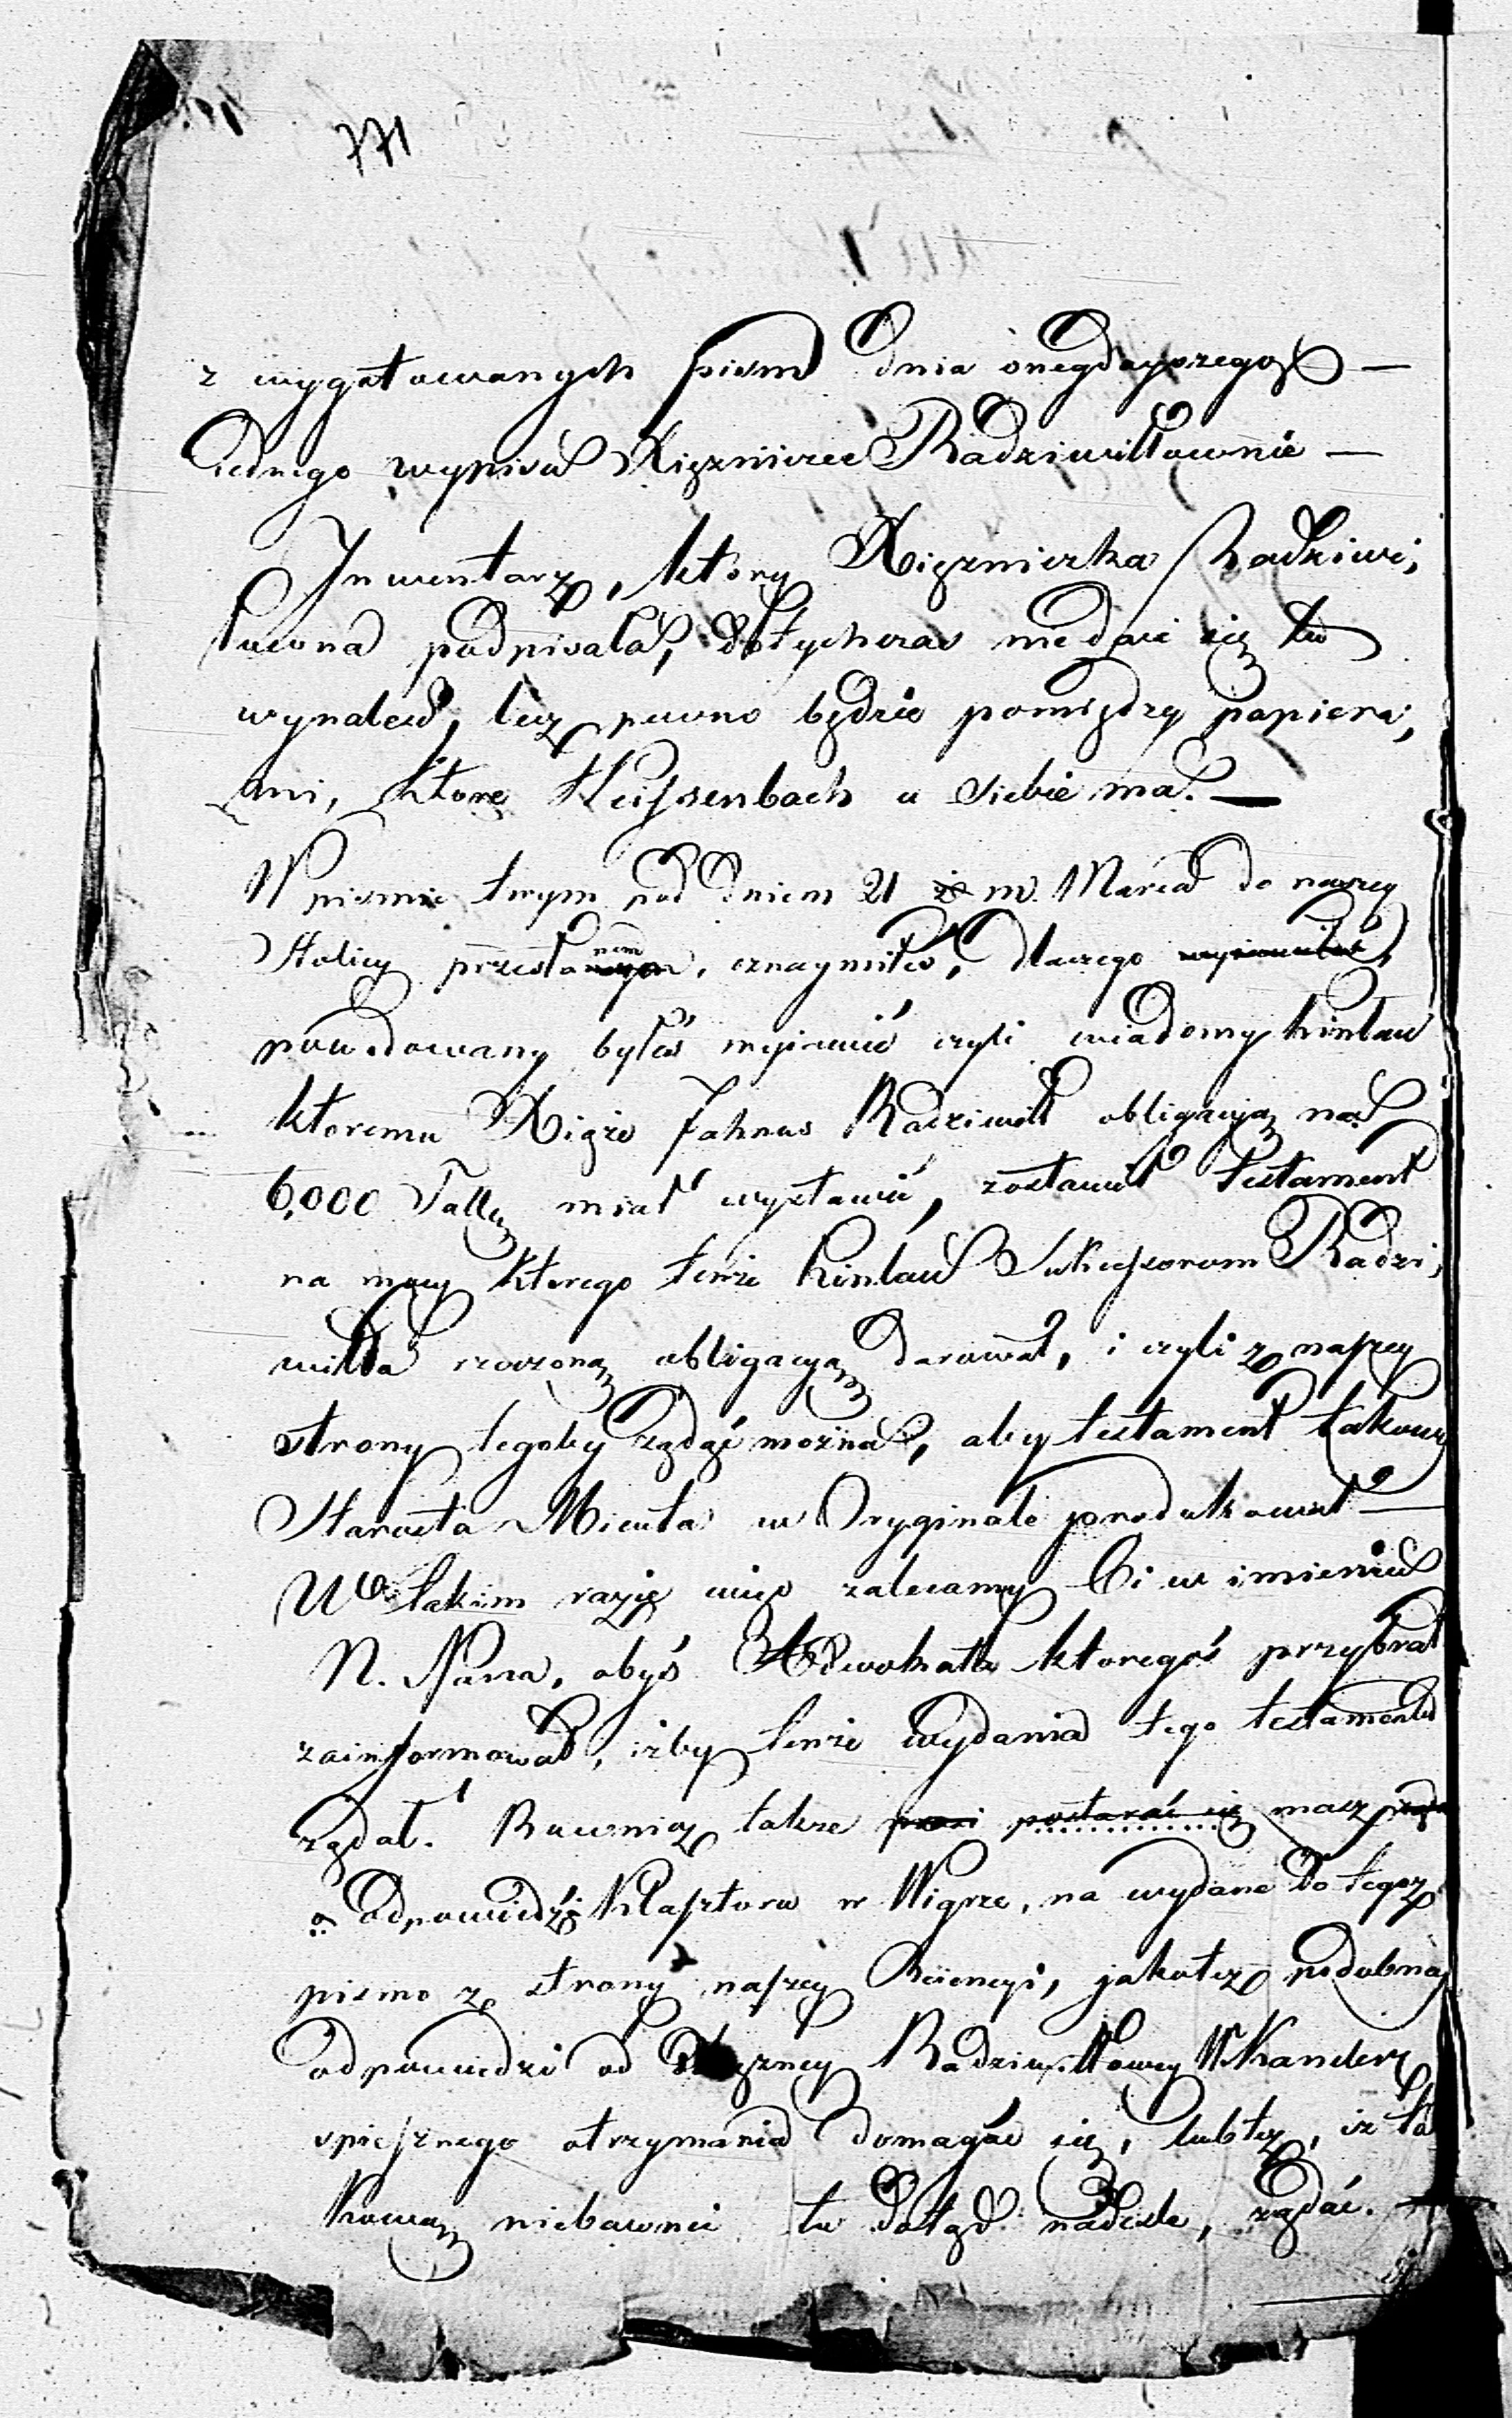 771
z wygotowanych pism dnia onegdayszego —
iednego wypisu Xiężniczce Radziwiłłownie —
Inwentarz, ktory Xiężniczka Radziwi,
łowna podpisała, dotychczas nie daie się tu
wynaleść, lecz pewno będzie pomiędzy papiera,
mi, ktore Heissenbach u siebie ma. —
W pismie twym pod dniem 21 m. Marca do naszey
Stolicy przesłanem, oznaymiłeś, dlaczego
powodowany byłeś czyli wiadomy Kintau
ktoremu Xiąże Jahnus Radziwiłł obligacyą na
6,000 Tall. miał wystawić, zostawił testament
na mocy ktorego tenże Kintau Sukcessorom Radzi,
wiłła rzeczoną obligacyą darował, i czyli z naszey
strony tegoby żądać można, aby testament takowy
Starosta Micuta w Oryginale produkował —
W takim razie więc zalecamy Ci w imieniu
N. Pana, abyś Adwokata ktoregoś przybrał
zainformował, iżby tenże wydania tego testamentu
żądał. Rownież także postarać się masz
o Odpowiedź Klasztoru w Wigrze, na wydane do tegoż
pismo z strony naszey Reiencyi, jakoteż podobną
odpowiedzi od Radziwiłłowey W Kanclerz
spiesznego otrzymania domagać się, lub też, iż ta
kową niebawnie tu dotąd nadeszle, żądać. —